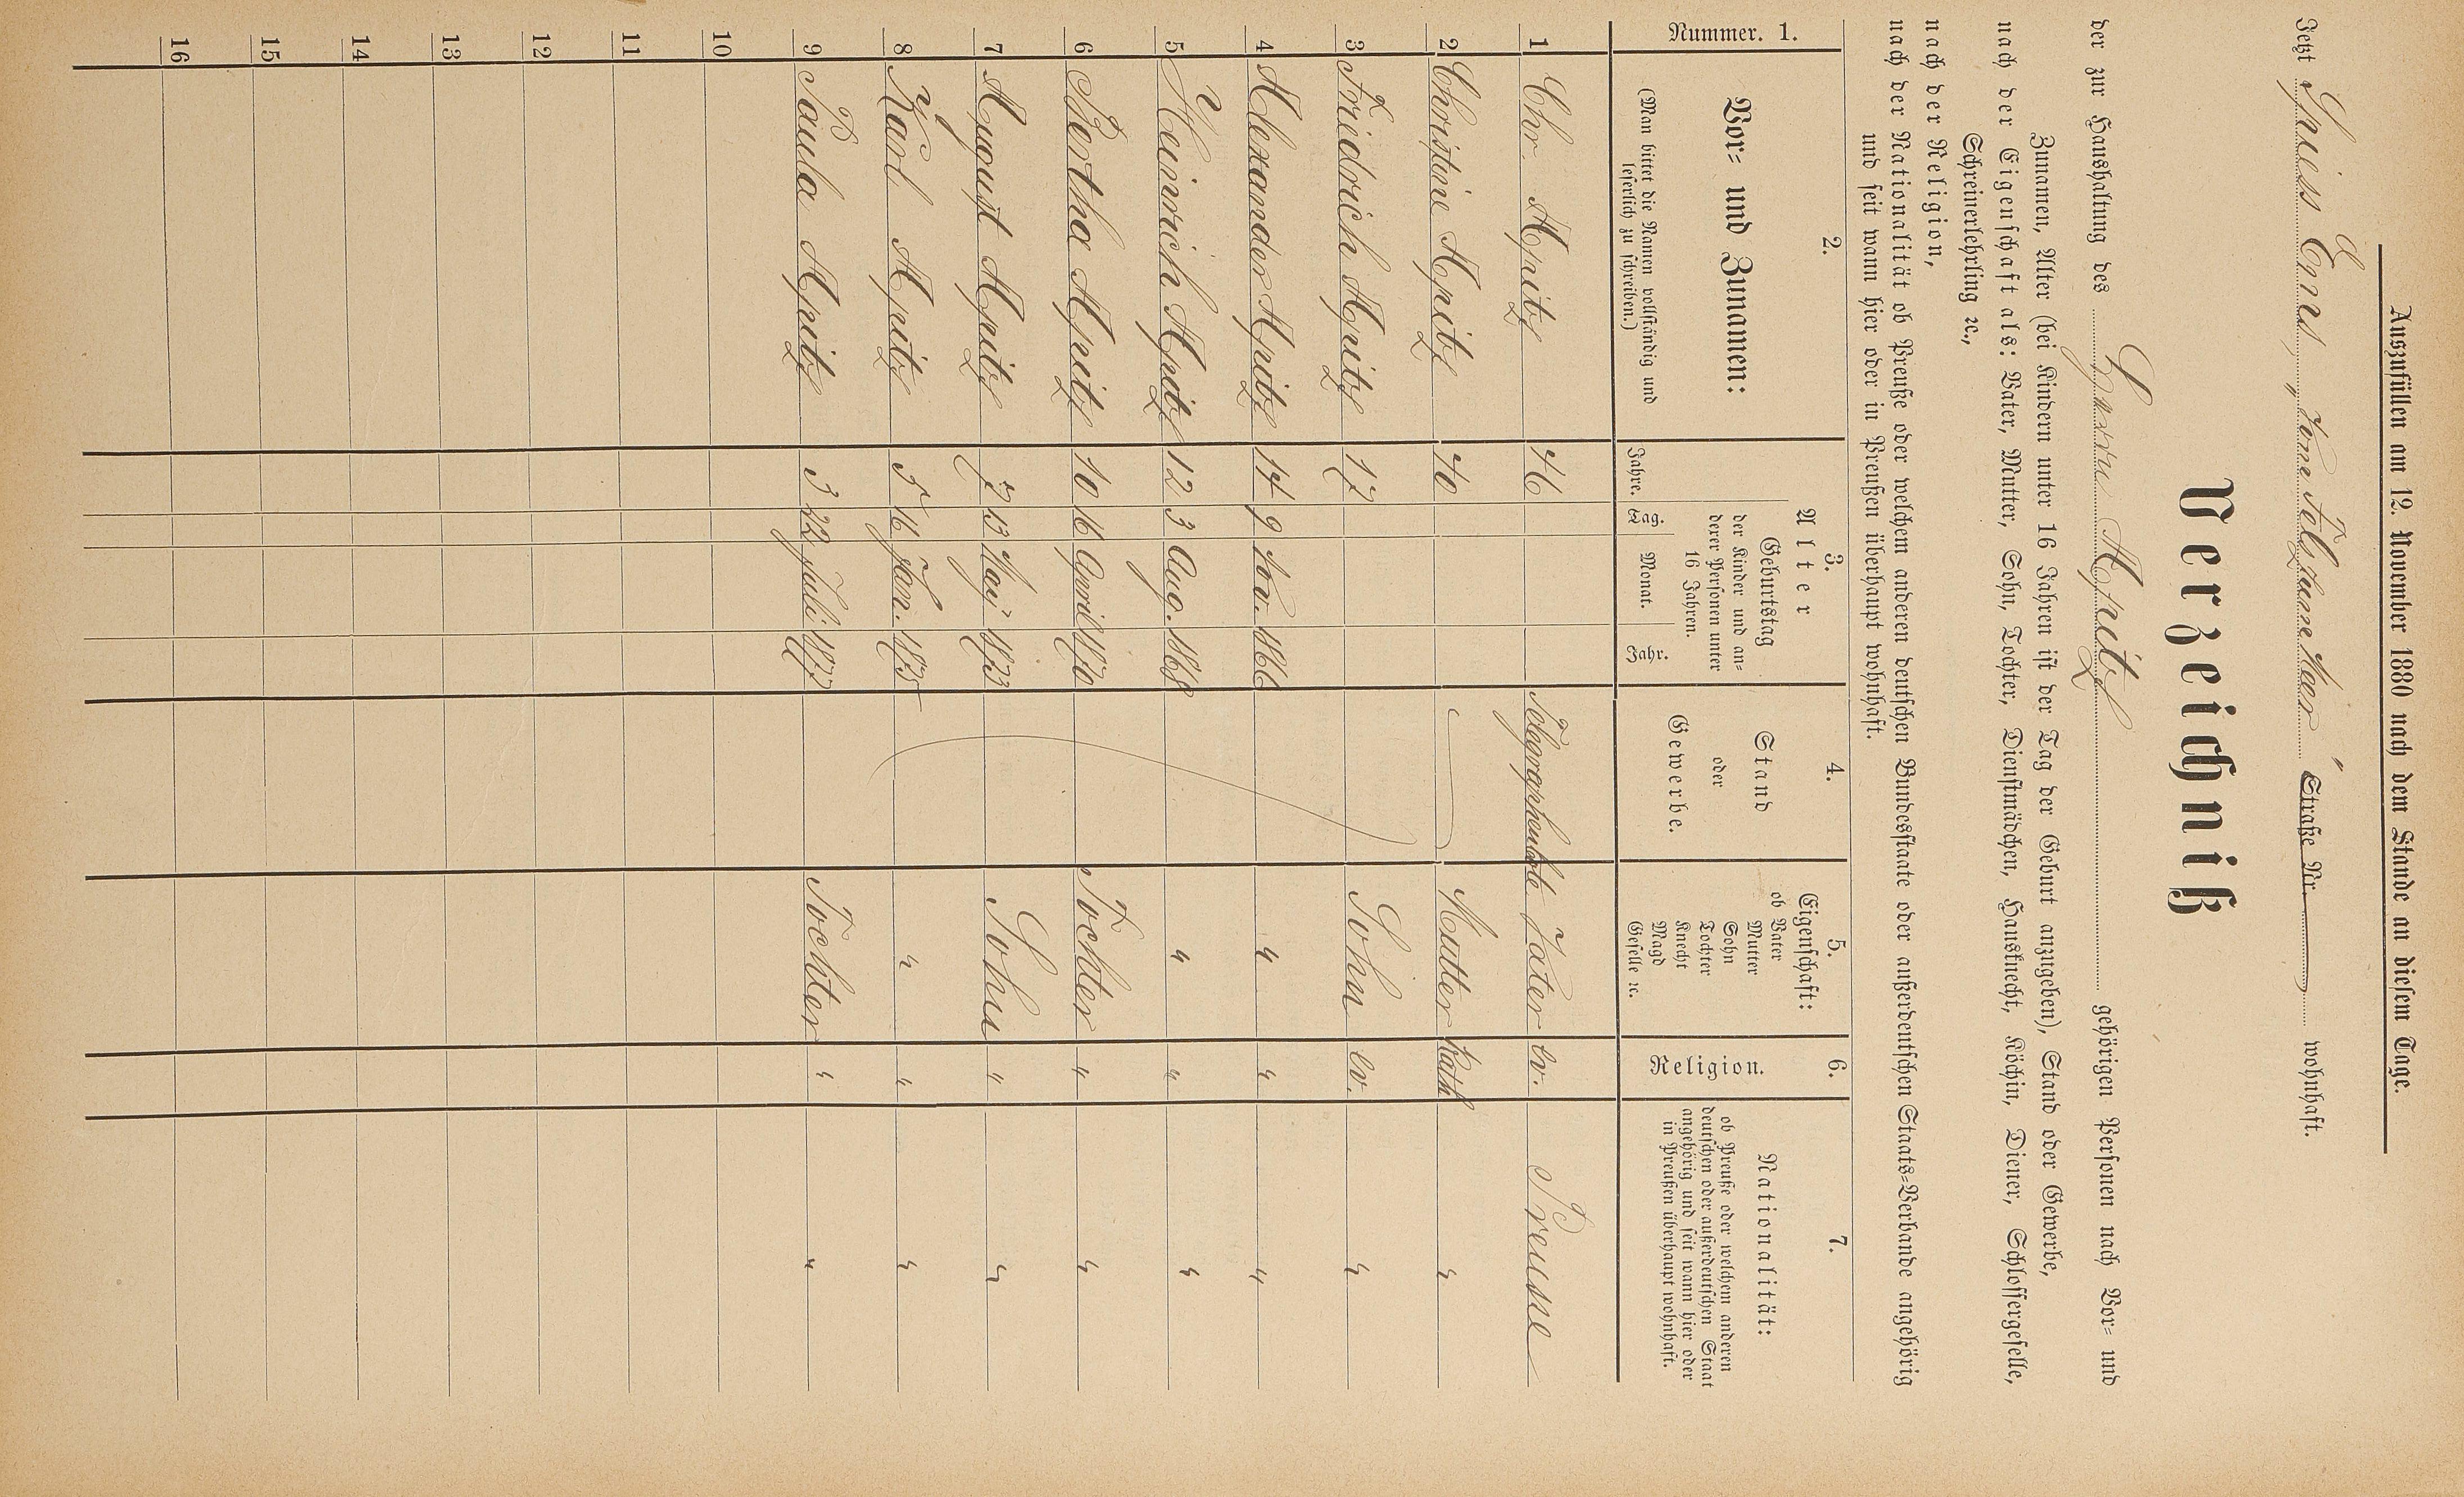 Auszufüllen am 12. November 1880 nach dem Stande an diesem Tage.
Jetzt Spiess Ems, „ vom Fels zum Meer " Straße Nr. wohnhaft.
Verzeichniß
der zur Haushaltung des Herrn Apitz gehörigen Personen nach Vor- und
Zunamen, Alter (bei Kindern unter 16 Jahren ist der Tag der Geburt anzugeben), Stand oder Gewerbe,
nach der Eigenschaft als: Vater, Mutter, Sohn, Tochter, Dienstmädchen, Hausknecht, Köchin, Diener, Schlossergeselle,
Schreinerlehrling ꝛc.,
nach der Religion,
nach der Nationalität ob Preuße oder welchem anderen deutschen Bundesstaate oder außerdeutschen Staats-Verbande angehörig
und seit wann hier oder in Preußen überhaupt wohnhaft.
Nummer. 1.
2.
Vor- und Zunamen:
(Man bittet die Namen vollständig und
leserlich zu schreiben.)
3.
Alter
Jahre.
Geburtstag
der Kinder und an-
derer Personen unter
16 Jahren.
Tag. Monat. Jahr.
4.
Stand
oder
Gewerbe.
5.
Eigenschaft:
ob Vater
Mutter
Sohn
Tochter
Knecht
Magd
Geselle ꝛc.
6.
Religion.
7.
Nationalität:
ob Preuße oder welchem anderen
deutschen oder außerdeutschen Staat
angehörig und seit wann hier oder
in Preußen überhaupt wohnhaft.
1 Chr. Apitz 46 Telegraphenbote Vater ev. Preusse
2 Christine Apitz 40 Mutter Kath "
3 Friedrich Apitz 17 Sohn ev. "
4 Alexander Apitz 14 9 Nov. 1866 " " "
5 Heinrich Apitz 12 3 Aug. 1868 " " "
6 Bertha Apitz 10 16 April 1870 Tochter " "
7 August Apitz 7 13 May 1873 Sohn " "
8 Karl Apitz 5 16 Jan. 1875 " " "
9 Paula Apitz 3 22 Juli 1877 Tochter " "
10
11
12
13
14
15
16